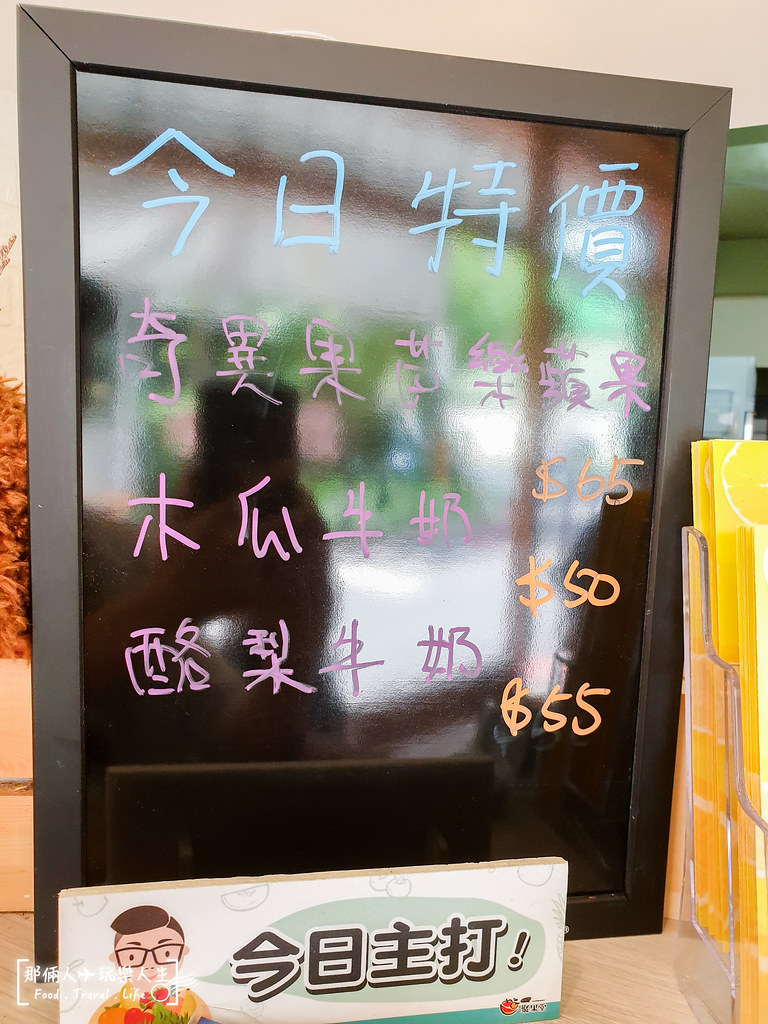 今日特價
奇異果芭樂蘋果
$65
木瓜牛奶
$50
酪梨牛奶
$55
今日主打!
那倆人玩樂人生
Food . Travel . Life